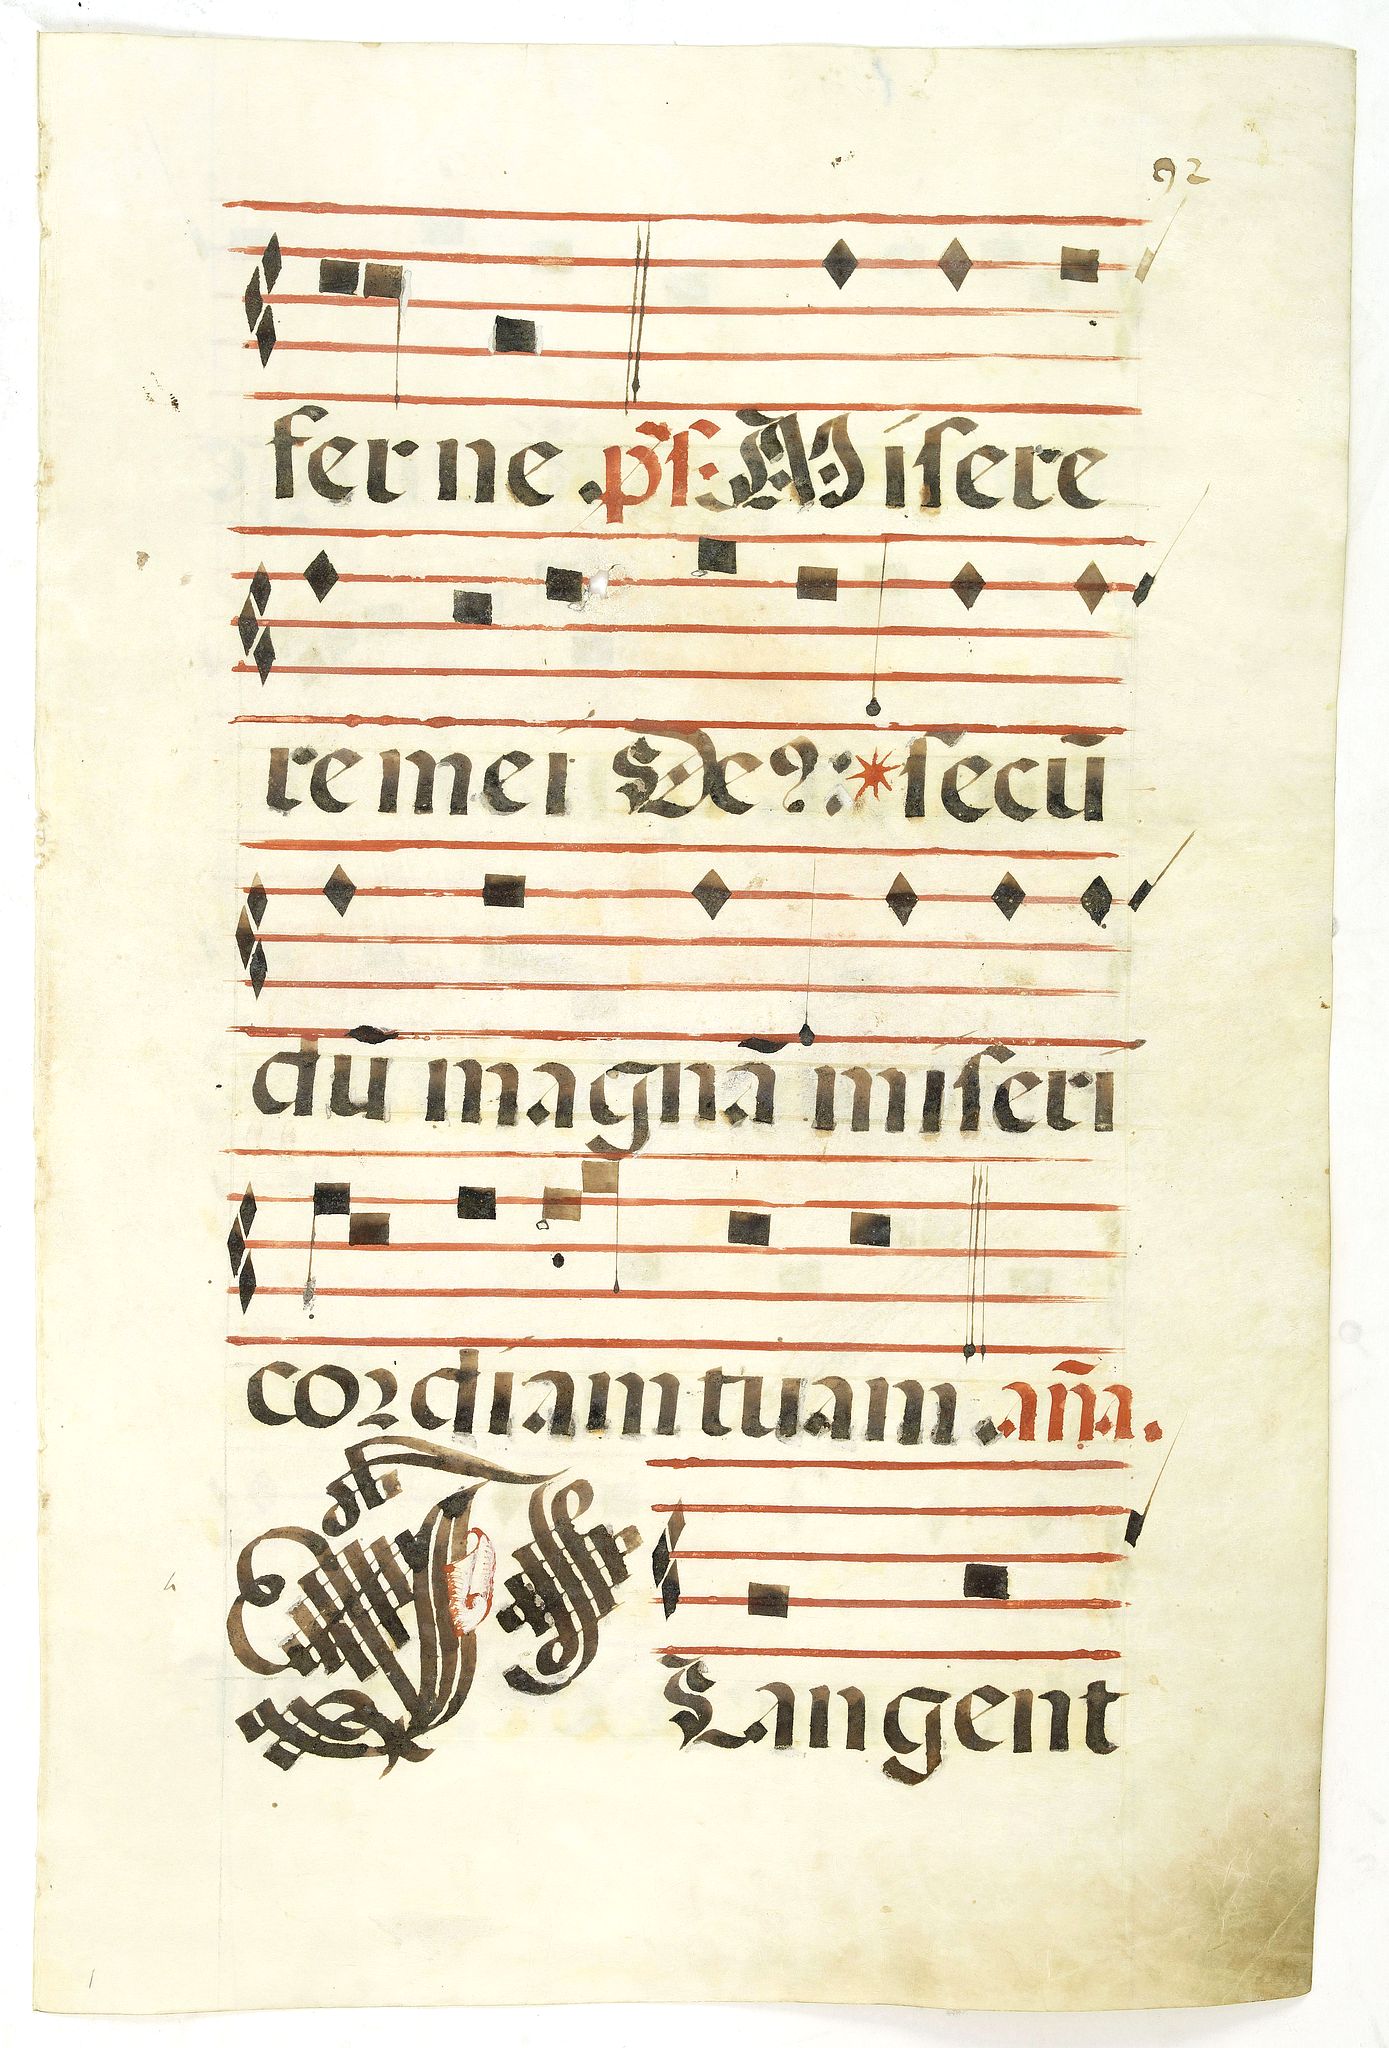 92
fer ne . p̄s. Misere
re mei Deꝰ: * secū
dū magnā miseri
cordiam tuam . añā.
P Langent